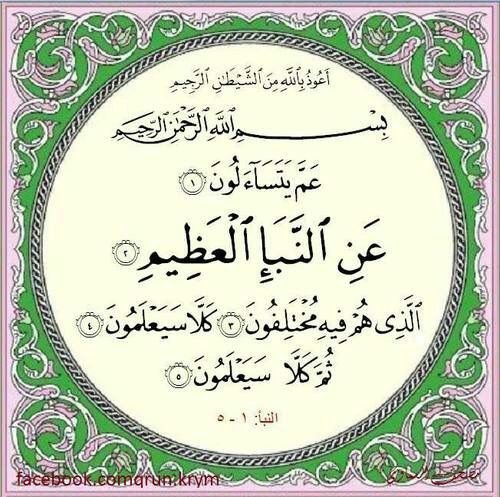 أَعُوذُ بِاللَّهِ مِنَ الشَّيْطَانِ الرَّجِيمِ
بِسْمِ اللَّهِ الرَّحْمَٰنِ الرَّحِيمِ
عَمَّ يَتَسَآءَلُونَ ١
عَنِ ٱلنَّبَإِ ٱلْعَظِيمِ ٢
ٱلَّذِى هُمْ فِيهِ مُخْتَلِفُونَ ٣ كَلَّا سَيَعْلَمُونَ ٤
ثُمَّ كَلَّا سَيَعْلَمُونَ ٥
النبأ: ١ - ٥
facebook.comqrun.krym